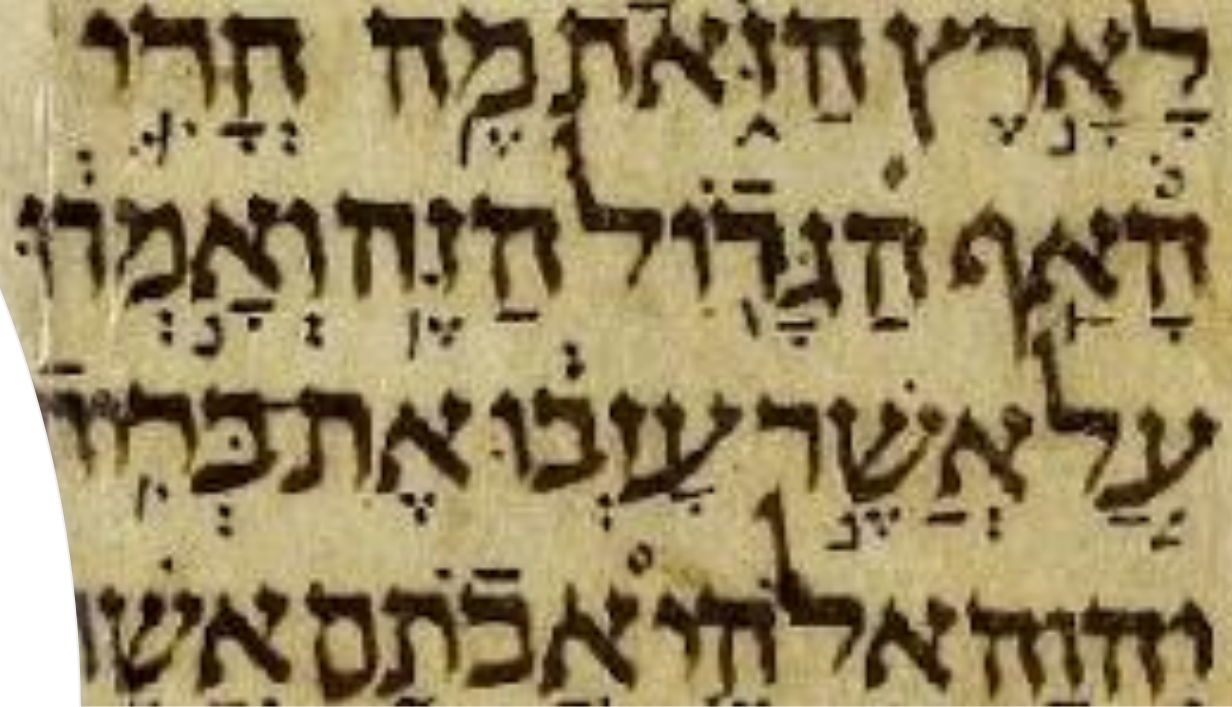 לָאָרֶץ הַזֹּאת מֶה חֳרִי
הָאַף הַגָּדוֹל הַזֶּה וְאָמְרוּ
עַל אֲשֶׁר עָזְבוּ אֶת בְּרִית
יהוה אלהי אבתם